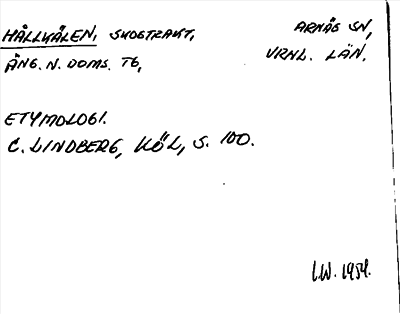 HÅLLKÅLEN, SKOGTRAKT, ARNÄS SN,
ÅNG. N. DOMS. TG, VRNL. LÄN.
ETYMOLOGI.
C. LINDBERG, KÖL, S. 100.
I.W. 1954.